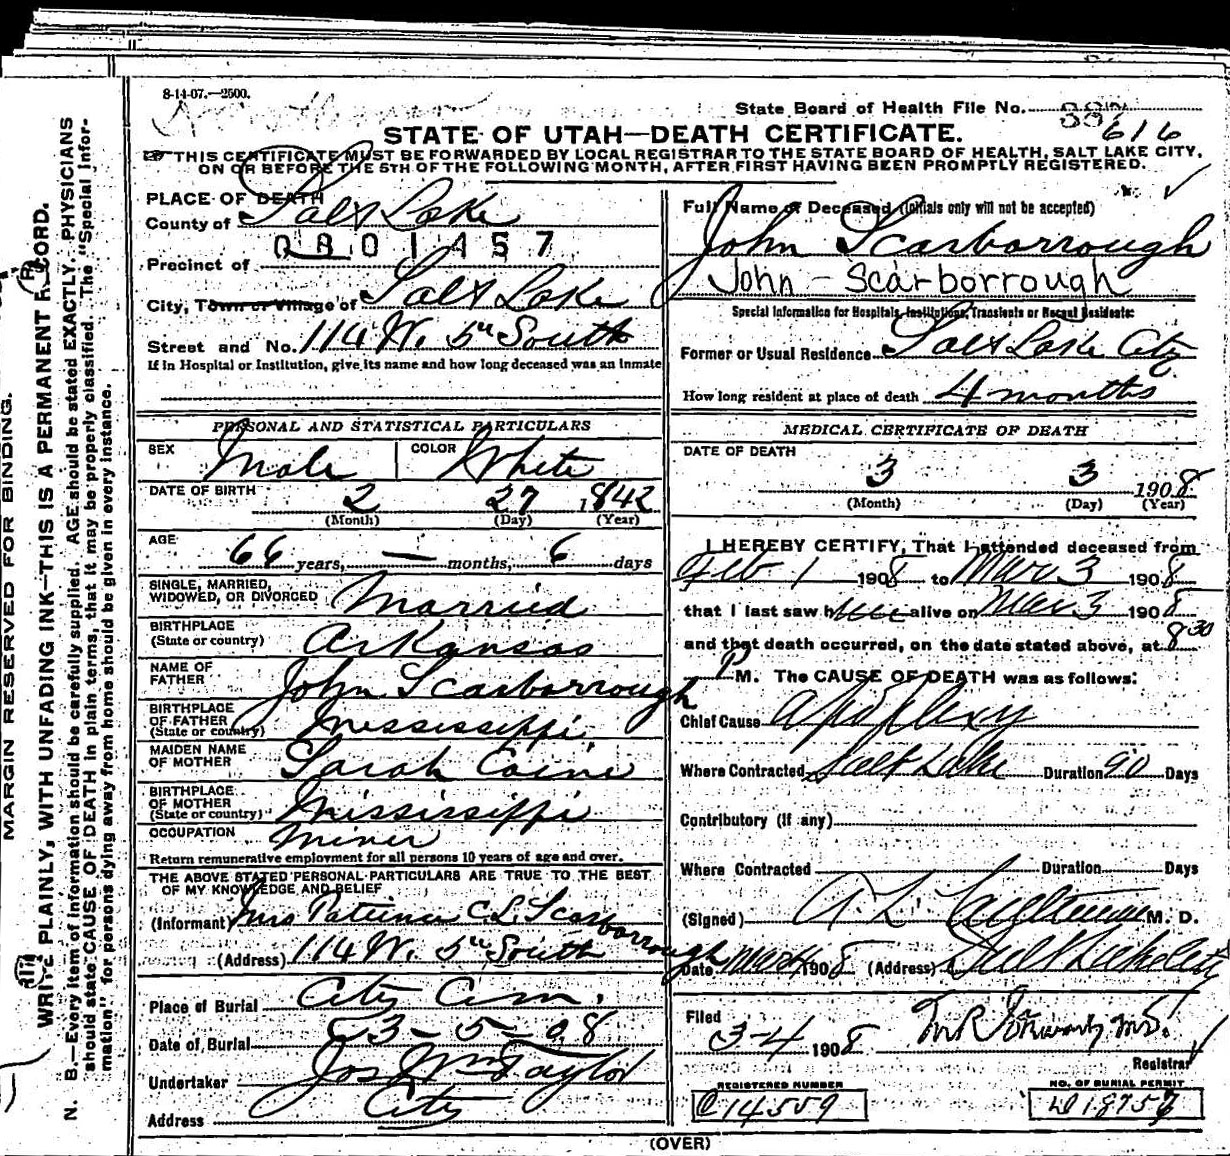 MARGIN RESERVED FOR BINDING.
WRITE PLAINLY, WITH UNFADING INK—THIS IS A PERMANENT RECORD.
N. B.—Every item of information should be carefully supplied. AGE should be stated EXACTLY. PHYSICIANS
should state CAUSE OF DEATH in plain terms, that it may be properly classified. The "Special Infor-
mation" for persons dying away from home should be given in every instance.
8-14-07.—2500.
State Board of Health File No.
616
STATE OF UTAH—DEATH CERTIFICATE.
THIS CERTIFICATE MUST BE FORWARDED BY LOCAL REGISTRAR TO THE STATE BOARD OF HEALTH, SALT LAKE CITY,
ON OR BEFORE THE 5TH OF THE FOLLOWING MONTH, AFTER FIRST HAVING BEEN PROMPTLY REGISTERED.
PLACE OF DEATH
County of Salt Lake
0801457
Precinct of
City, Town or Village of Salt Lake
Street and No. 114 W. 5th South
If in Hospital or Institution, give its name and how long deceased was an inmate
Full Name of Deceased (initials only will not be accepted)
John Scarborrough
John - Scarborrough
Special Information for Hospitals, Institutions, Transients or Recent Residents:
Former or Usual Residence Salt Lake City
How long resident at place of death 4 months
PERSONAL AND STATISTICAL PARTICULARS
SEX Male COLOR White
DATE OF BIRTH 2 27 1842
(Month) (Day) (Year)
AGE 66 years, — months, 6 days
SINGLE, MARRIED,
WIDOWED, OR DIVORCED Married
BIRTHPLACE
(State or country) Arkansas
NAME OF
FATHER John Scarborrough
BIRTHPLACE
OF FATHER
(State or country) Mississippi
MAIDEN NAME
OF MOTHER Sarah Caine
BIRTHPLACE
OF MOTHER
(State or country) Mississippi
OCCUPATION Miner
Return remunerative employment for all persons 10 years of age and over.
THE ABOVE STATED PERSONAL PARTICULARS ARE TRUE TO THE BEST
OF MY KNOWLEDGE AND BELIEF
(Informant) Mrs Patience C. L. Scarborrough
(Address) 114 W. 5th South
Place of Burial City Cem.
Date of Burial 3-5-08
Undertaker Jos Wm Taylor
Address City
MEDICAL CERTIFICATE OF DEATH
DATE OF DEATH
3 3 1908
(Month) (Day) (Year)
I HEREBY CERTIFY, That I attended deceased from
Feb 1 1908 to Mar 3 1908
that I last saw him alive on Mar 3 1908
and that death occurred, on the date stated above, at 8 30
P M. The CAUSE OF DEATH was as follows:
Chief Cause Apoplexy
Where Contracted Salt Lake Duration 90 Days
Contributory (If any)
Where Contracted Duration Days
(Signed) M. D.
Date Mar 4 1908 (Address) Salt Lake City
Filed
3-4 1908
Registrar
REGISTERED NUMBER
C 14559
NO. OF BURIAL PERMIT
(OVER)